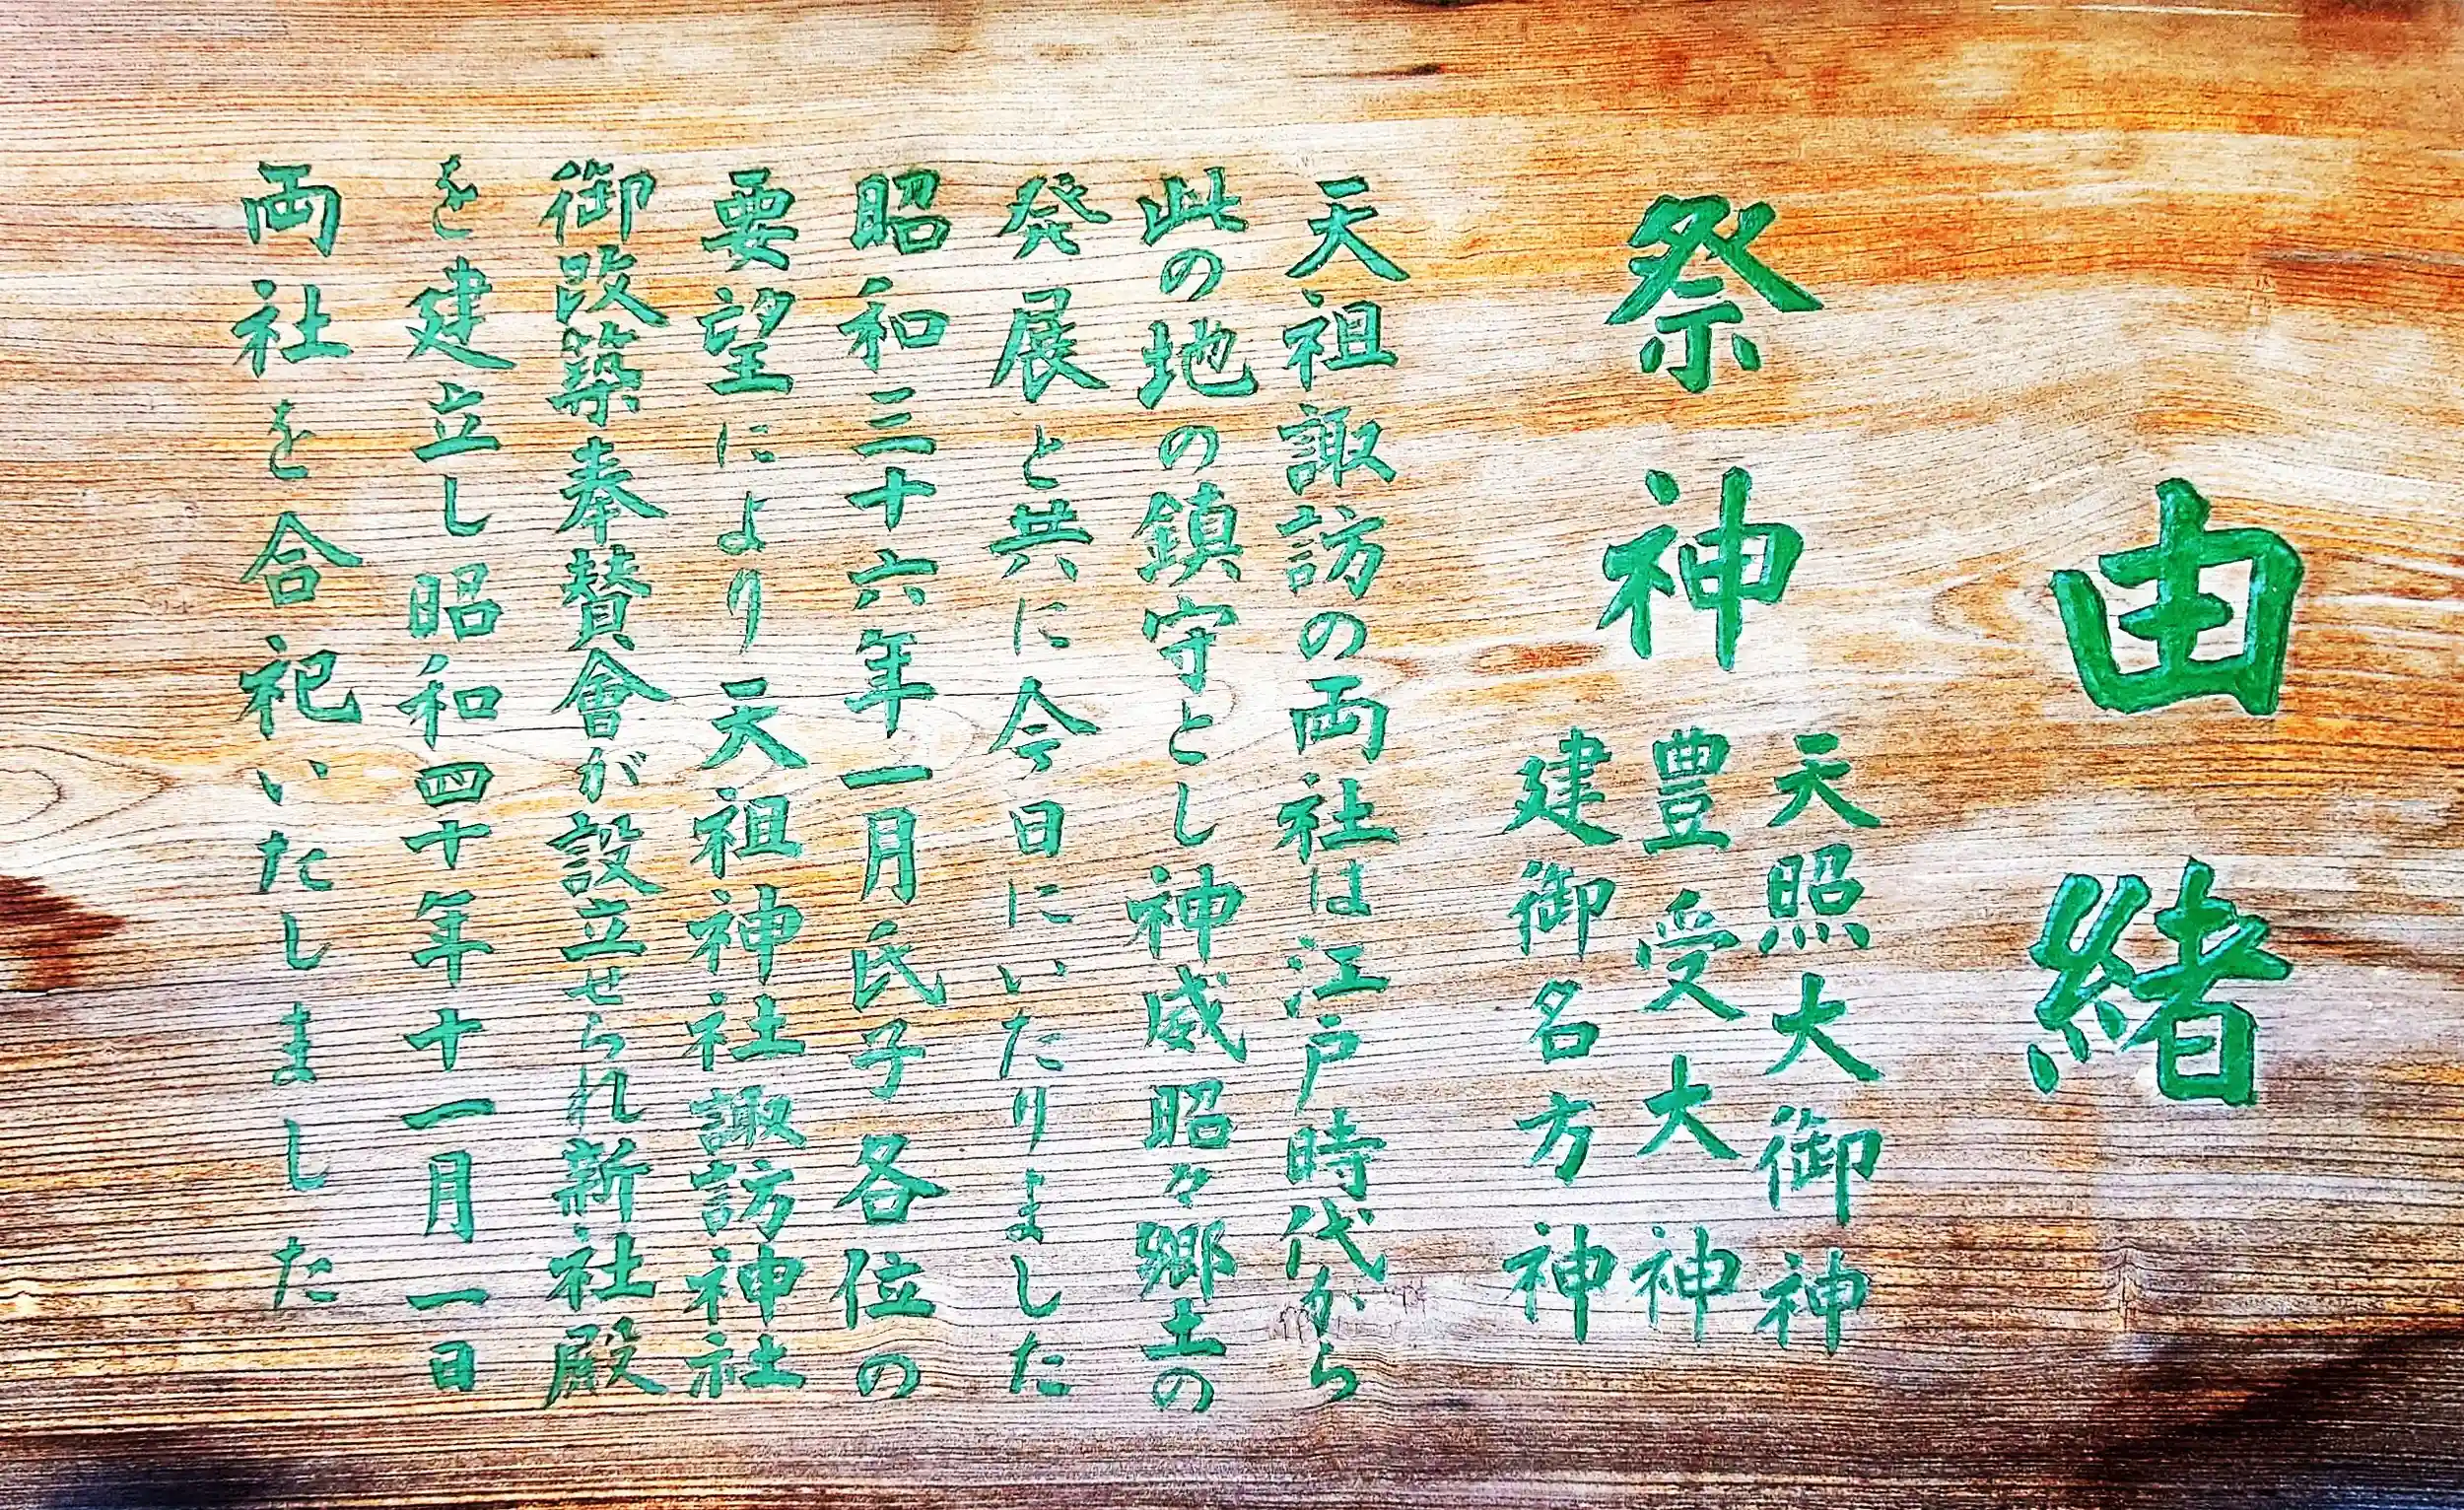 由緒
祭神
天照大御神
豊受大神
建御名方神
天祖諏訪の両社は江戸時代から
此の地の鎮守とし神威昭々郷土の
発展と共に今日にいたりました
昭和三十六年一月氏子各位の
要望により天祖神社諏訪神社
御改築奉賛會が設立せられ新社殿
を建立し昭和四十年十一月一日
両社を合祀いたしました